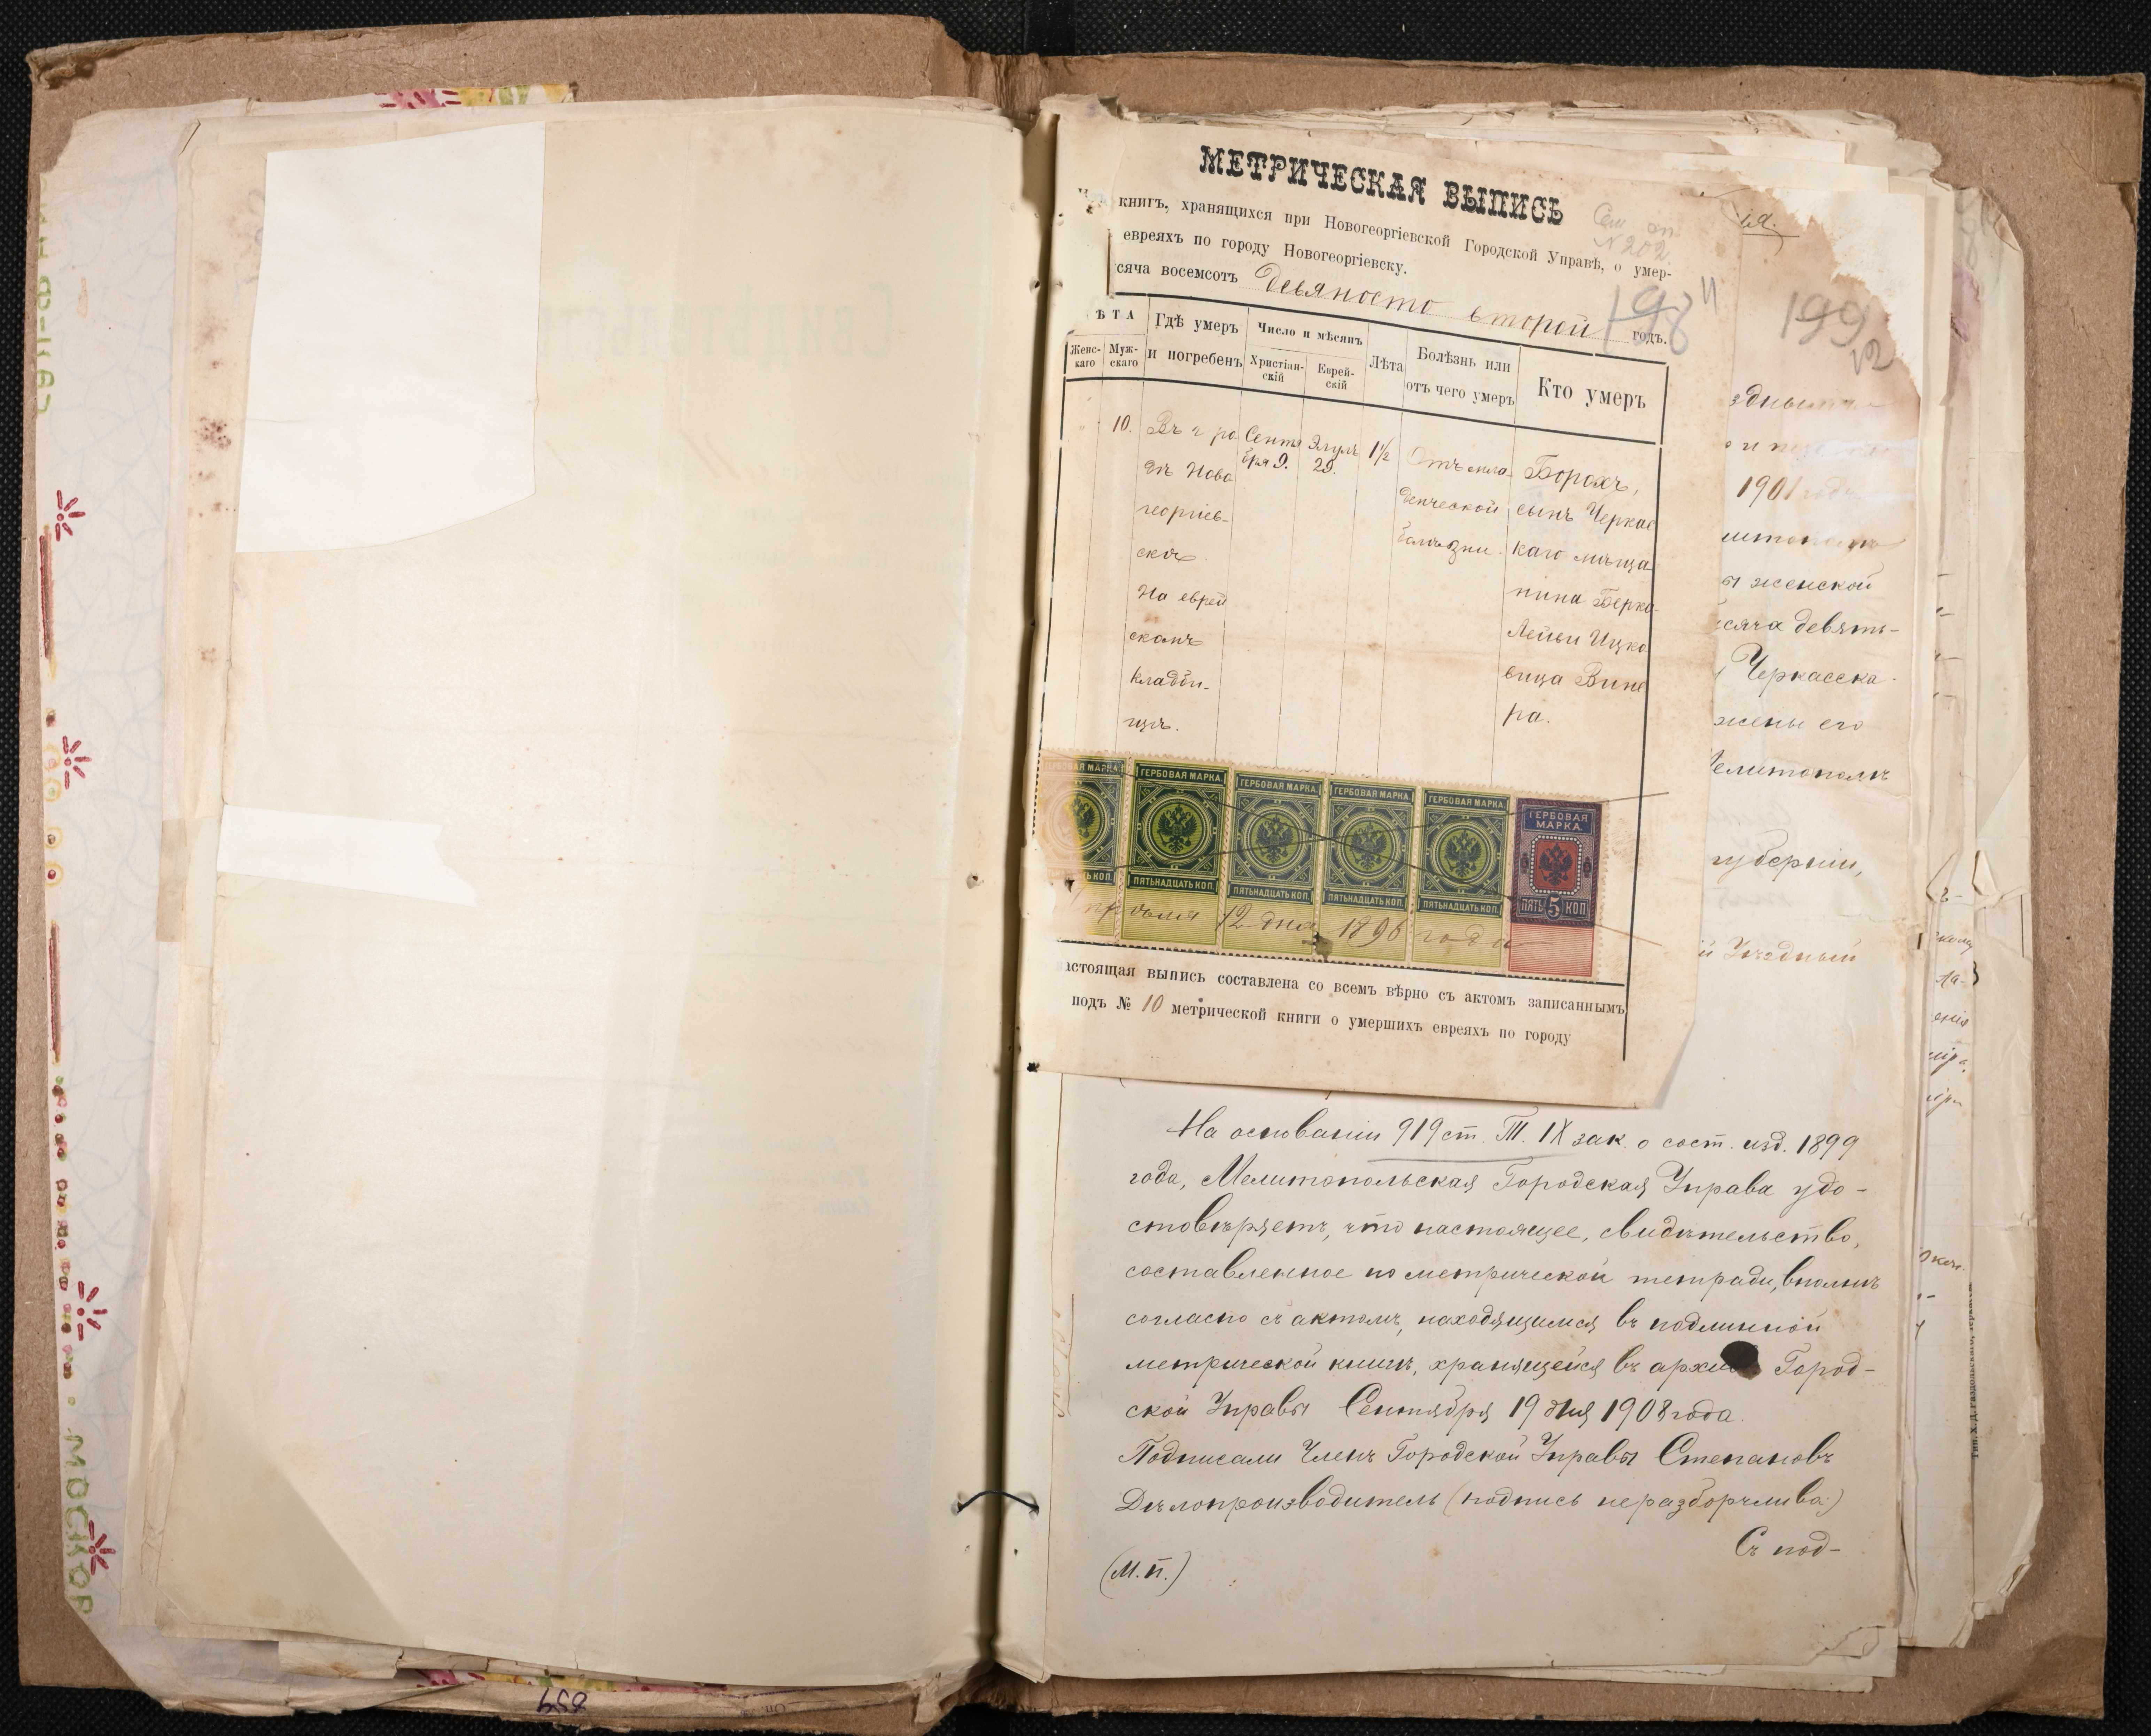 МЕТРИЧЕСКАЯ ВЫПИСЬ
книгъ, хранящихся при Новогеоргіевской Городской Управѣ, о умер-
евреяхъ по городу Новогеоргіевску.
сяча восемсотъ девяносто второй годъ.
№ 202
198
199
ѢТА
Женс-
каго
Муж-
скаго
Гдѣ умеръ
и погребенъ
Число и мѣсяцъ
Христіан-
скій
Еврей-
скій
Лѣта
Болѣзнь или
отъ чего умеръ
Кто умеръ
10.
Въ горо
дѣ Ново
георгіев-
скѣ.
На еврей
скомъ
кладби-
щѣ.
Сентя
бря 9.
Элулъ
29.
1½
Отъ мла-
денческой
болѣзни.
Борохъ,
сынъ Черкас
каго мѣща
нина Берка-
Лейзи Ицко
вица Вине
ра.
ГЕРБОВАЯ МАРКА.
ЬКОП.
ГЕРБОВАЯ МАРКА.
ПЯТЬНАДЦАТЬ КОП.
ГЕРБОВАЯ МАРКА.
ПЯТЬНАДЦАТЬ КОП.
ГЕРБОВАЯ МАРКА.
ПЯТЬНАДЦАТЬ КОП.
ГЕРБОВАЯ МАРКА.
ПЯТЬНАДЦАТЬ КОП.
ГЕРБОВАЯ
МАРКА.
ПЯТЬ 5 КОП
преля 12 дня 1896 года
астоящая выпись составлена со всемъ вѣрно съ актомъ записаннымъ
подъ № 10 метрической книги о умершихъ евреяхъ по городу
ія.
1901 года
ы женской
сяча девять-
Черкасска-
жены его
Мелитополѣ
губерніи,
й Уѣздный
На основаніи 919 ст. Т. IX зак. о сост. изд. 1899
года, Мелитопольская Городская Управа удо-
стовѣряетъ, что настоящее, свидѣтельство,
составленное по метрической тетради, вполнѣ
согласно съ актомъ, находящимся въ подлинной
метрической книгѣ, хранящейся въ архивѣ Город-
ской Управы Сентября 19 дня 1908 года.
Подписали Членъ Городской Управы Степановъ
Дѣлопроизводитель (подпись неразборчива)
Съ под-
(М.п.)
МОСКОВ
659